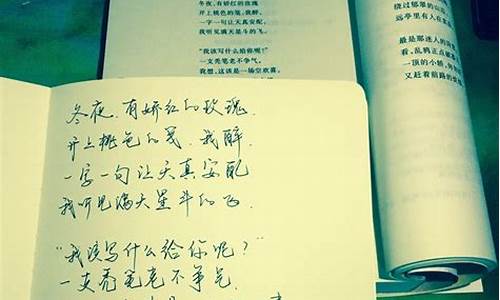 冬夜，有娇红的玫瑰
开上桃色的笺，我醉，
一字一句让天真安配，
我听见满天星斗的飞。
“我该写什么给你呢？”
一支秃笔老不争气。
我想，这该是一场空欢喜，
绕过郁翠的山
远亭里有人在
最是那迷人的
看，乱鸦正点破
一顶的小轿，
又赶着前路的
冬夜，有娇红的玫瑰，
开上桃色的笺，我醉，
一字一句让天真安配
我听见满天星斗的飞．
“我该写什么给你呢？”
一支秃笔老不争气．